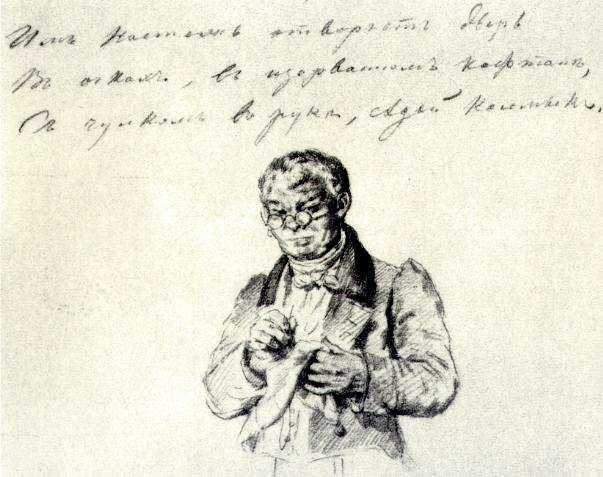 Имъ настежь отворяетъ дверь
Въ очкахъ, въ изорванномъ кафтанѣ,
Съ чулкомъ въ рукѣ, сѣдой калмыкъ.